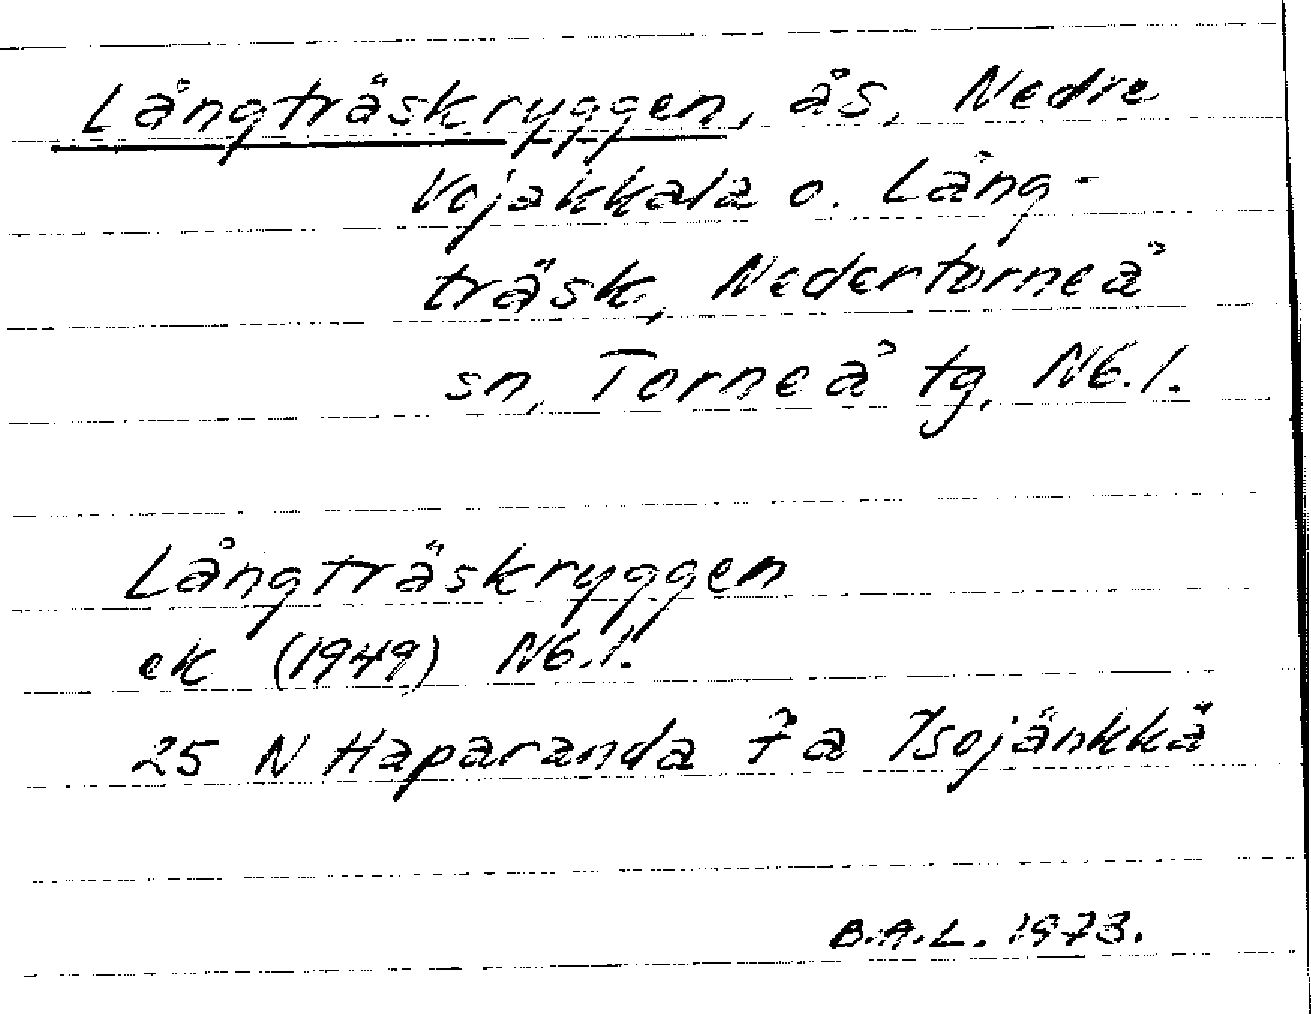 Långträskryggen, ås, Nedre
Vojakkala o. Lång-
träsk, Nedertorneå
sn, Torneå tg, Nb.l.
Långträskryggen
ek (1949) Nb.l.
25 N Haparanda 7a Isojänkkä
B.A.L. 1973.